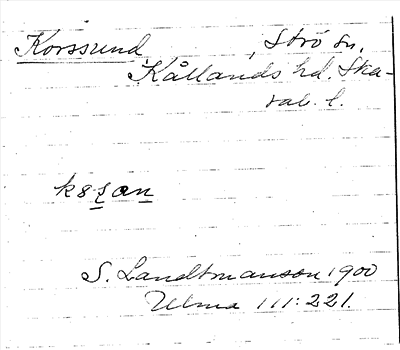 Korssund, Strö sn,
Kållands hd. Ska-
rab. l.
S. Landtmanson 1900
Ulma 111:221.